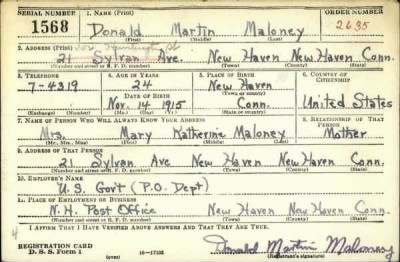 SERIAL NUMBER 1. NAME (Print) ORDER NUMBER
1568 Donald Martin Maloney 2635
(First) (Middle) (Last)
2. ADDRESS (Print)
21 Sylvan Ave. New Haven New Haven Conn.
(Number and street or R. F. D. number) (Town) (County) (State)
3. TELEPHONE 4. AGE IN YEARS 5. PLACE OF BIRTH 6. COUNTRY OF CITIZENSHIP
7-4319 24 New Haven
(Town or county)
DATE OF BIRTH
Nov. 14 1915 Conn. United States
(Exchange) (Number) (Mo.) (Day) (Yr.) (State or country)
7. NAME OF PERSON WHO WILL ALWAYS KNOW YOUR ADDRESS 8. RELATIONSHIP OF THAT PERSON
Mrs. Mary Katherine Maloney Mother
(Mr., Mrs., Miss) (First) (Middle) (Last)
9. ADDRESS OF THAT PERSON
21 Sylvan Ave New Haven New Haven Conn.
(Number and street or R. F. D. number) (Town) (County) (State)
10. EMPLOYER'S NAME
U.S. Gov't (P.O. Dept)
11. PLACE OF EMPLOYMENT OR BUSINESS
N.H. Post Office New Haven New Haven Conn.
(Number and street or R. F. D. number) (Town) (County) (State)
I AFFIRM THAT I HAVE VERIFIED ABOVE ANSWERS AND THAT THEY ARE TRUE.
REGISTRATION CARD
D. S. S. Form 1 (over) 16-17105 Donald Martin Maloney
(Registrant's signature)